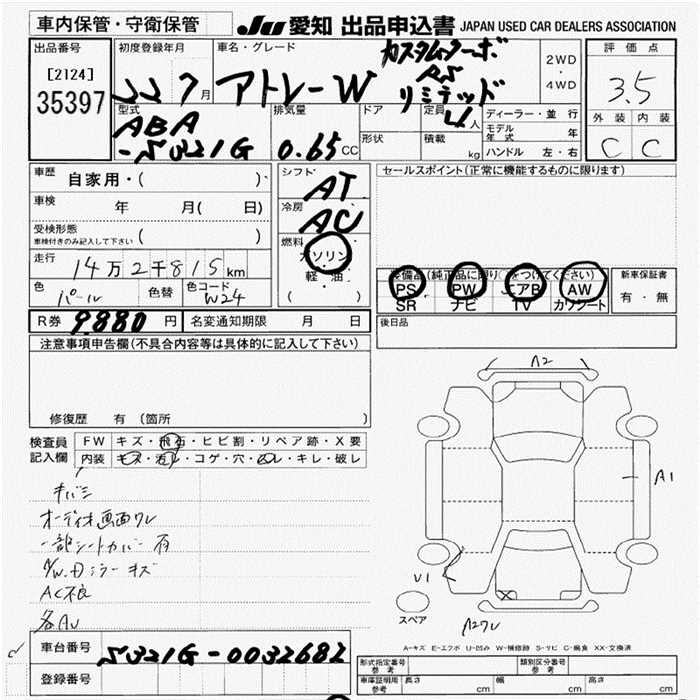 車内保管・守衛保管
JU 愛知 出品申込書 JAPAN USED CAR DEALERS ASSOCIATION
出品番号
[2124]
35397
初度登録年月
22 7月
車名・グレード
アトレーW
カスタムターボ
RS
リミテッド
2WD
・
4WD
評価点
3.5
外装 内装
C C
型式
ABA
-S321G
排気量
0.65 CC
ドア
形状
定員
4 人
積載
kg
ディーラー・並行
モデル年式 年
ハンドル 左・右
車歴 自家用・( )
車検 年 月( 日)
受検形態
車検付きのみ記入して下さい ( )
走行 14万2千815km
色 パール 色替 色コード W24
R券 9.880 円 名変通知期限 月 日
シフト
AT
冷房
AC
燃料
ガソリン
軽・油
( )
セールスポイント(正常に機能するものに限ります)
装備品(純正品に限り○をつけてください)
PS PW エアB AW
SR ナビ TV カワシート
新車保証書
有・無
後日品
注意事項申告欄(不具合内容等は具体的に記入して下さい)
修復歴 有(箇所
検査員
記入欄
FW キズ・飛石・ヒビ割・リペア跡・X要
内装 キズ・汚レ・コゲ・穴・ワレ・キレ・破レ
キバミ
オーディオ画面ワレ
一部シートカバー有
F/W.Dミラーキズ
AC不良
各AU
A2
A1
U1
X
A2ワレ
スペア
A-キズ E-エクボ U-凹み W-補修跡 S-サビ C-腐食 XX-交換済
車台番号 S321G-0032682
登録番号
形式指定番号
参考
類別区分番号
参考
車庫証明用
参考
長さ cm 幅 cm 高さ cm